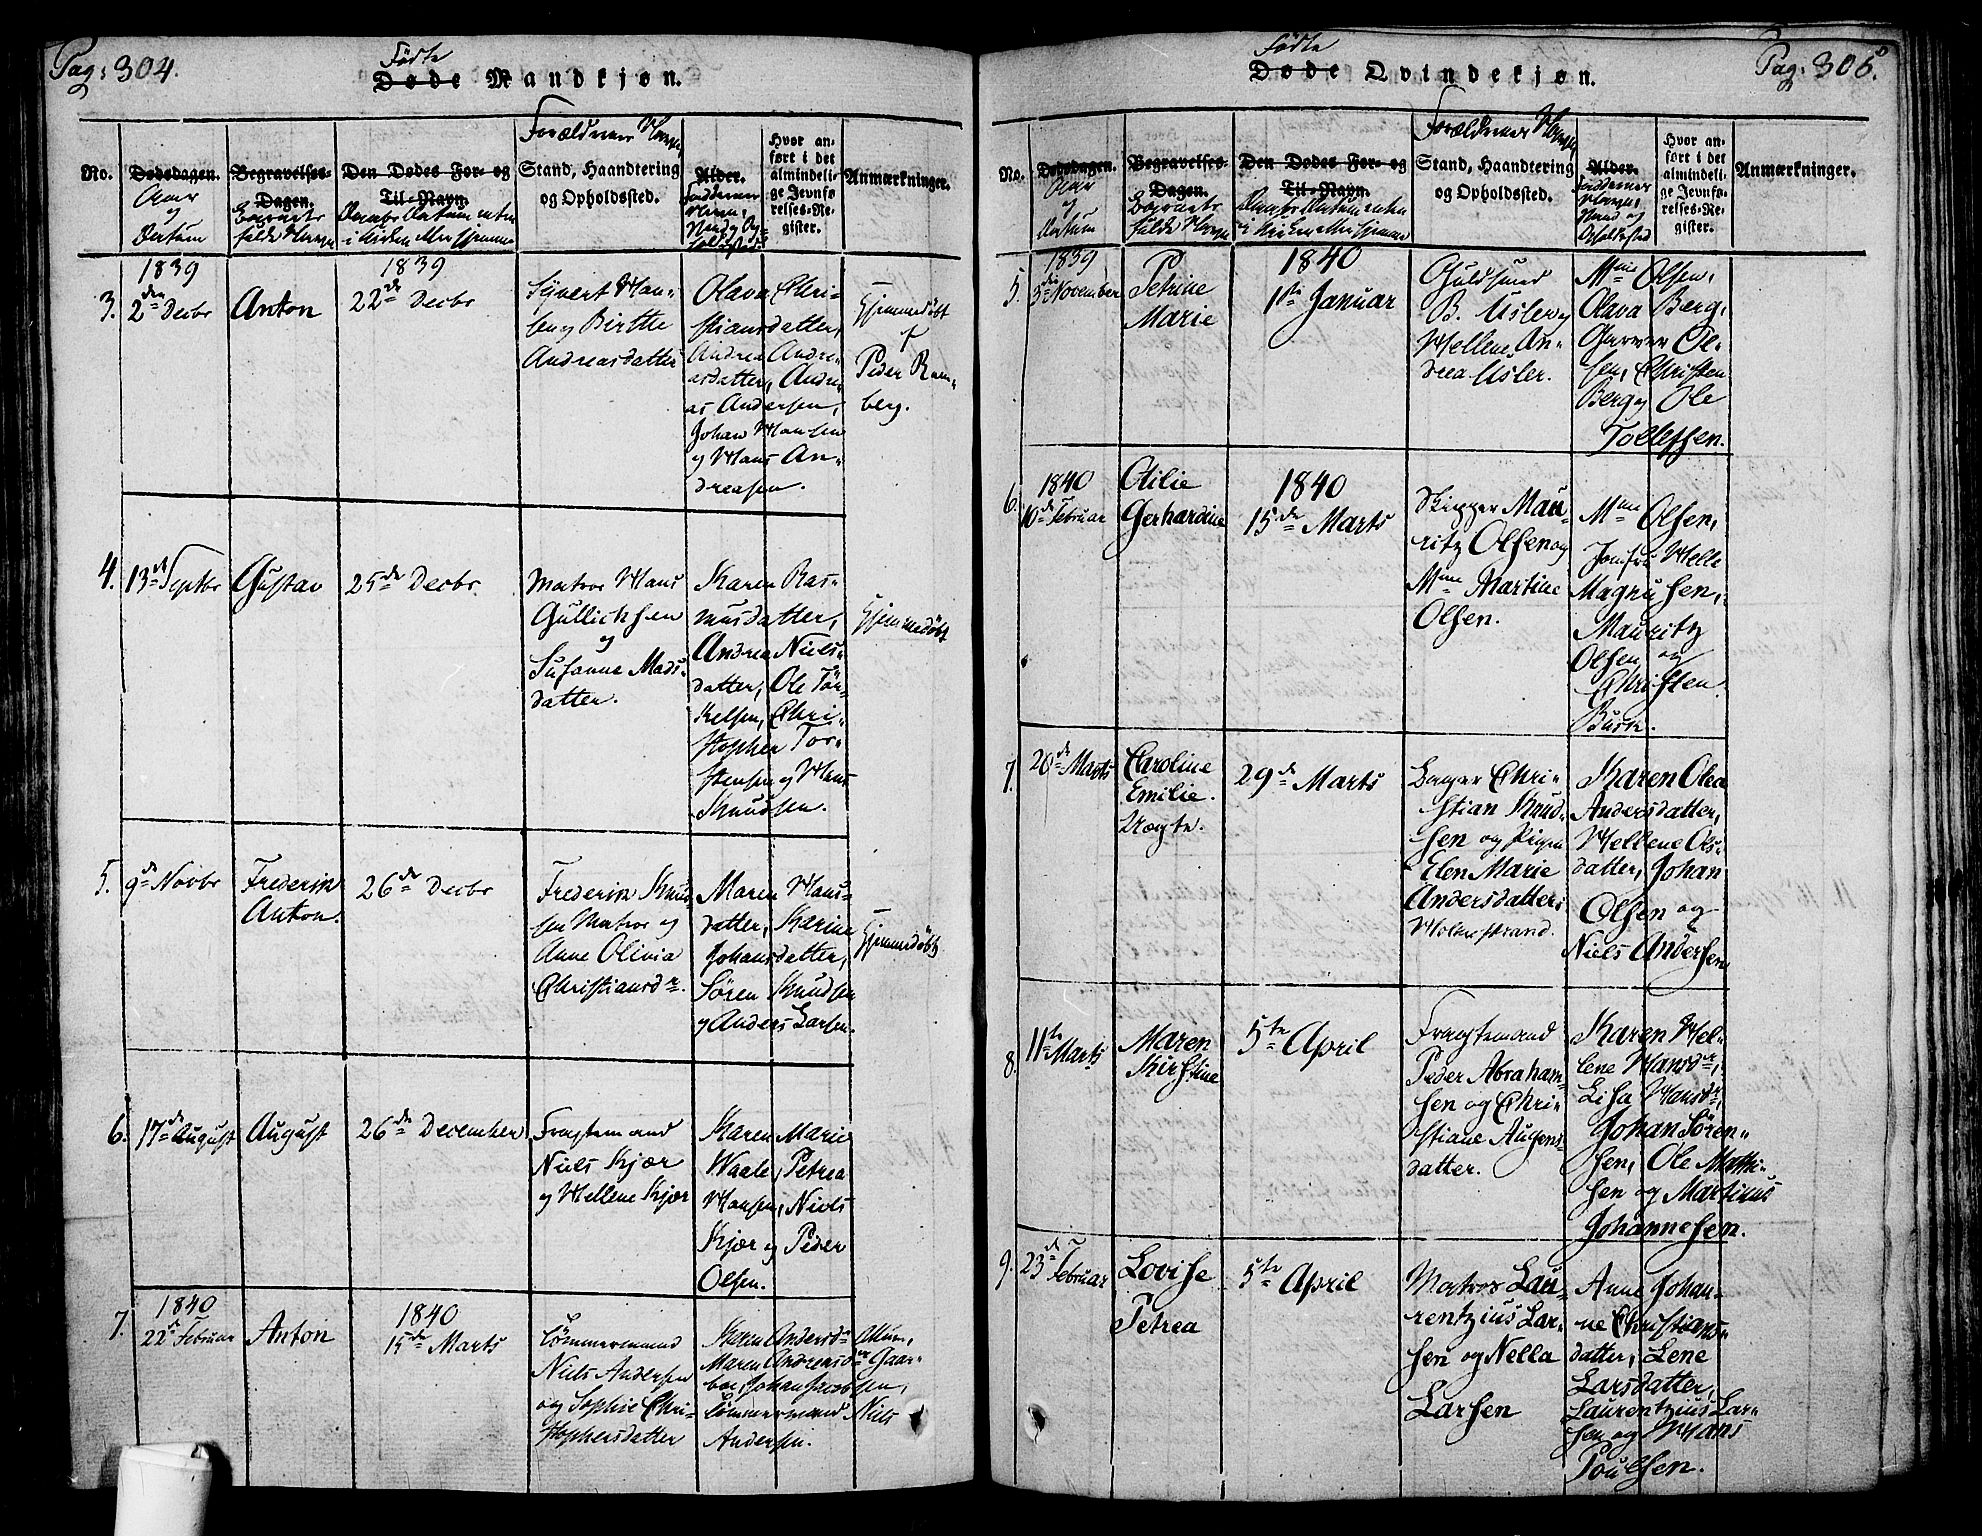 Pag: 304.
Fødte
Døde Mandkjøn.
No.
Dødsdagen.
Aar
og
Datum
Begravelses-
Dagen.
Barnets
fulde Navn
Den Dødes For- og
Til-Navn.
Daabs Datum enten
i Kirken eller hjemme
Forældrenes Navne,
Stand, Haandtering
og Opholdssted.
Alder.
Faddernes
Navne,
Stand og Op-
holdssted
Hvor an-
ført i det
almindeli-
ge Jevnfø-
relses-Re-
gister.
Anmærkninger.
3.
1839
2den Decbr
Anton
1839
22de Decbr
Syvert Han-
sen og Birthe
Andreasdatter
Olava Chri-
stiansdatter,
Andrea Andre-
asdatter, Andre-
as Andersen,
Johan Hansen
og Hans An-
dreasen.
Hjemmedøbt
af
Peder Ram-
berg.
4.
13de Septbr
Gustav
25de Decbr.
Matros Hans
Gullichsen
og
Susanne Mads-
datter.
Karen Ras-
musdatter,
Andrea Niels-
datter, Ole Tør-
kelsen, Chri-
stopher Tor-
stensen og Hans
Knudsen.
Hjemmedøbt
5.
9de Novbr
Frederik
Anton.
26de Decbr
Frederik Knud-
sen Matros og
Anne Olivia
Christiansdr.
Maren Hans-
datter, Karine
Johansdatter,
Søren Knudsen
og Anders Larsen.
Hjemmedøbt
6.
17de August
August
26de December
Fragtemand
Niels Kjær
og Hellene Kjær
Karen Marie
Waale, Petrea
Hansen, Niels
Kjær og Peder
Olsen.
7.
1840
22de Februar
Anton
1840
15de Marts
Tømmermand
Niels Andersen
og Sophie Chri-
stophersdatter
Karen Andersdr
Maren Andreasdr Gaar-
boe, Johan Jacobsen,
Tømmermand Niels
Andersen.
Pag: 305.
Fødte
Døde Qvindekjøn.
No.
Dødsdagen.
Aar
og
Datum
Begravelses-
Dagen.
Barnets
fulde Navn
Den Dødes For- og
Til-Navn.
Daabs Datum enten
i Kirken eller hjemme
Forældrenes Navne,
Stand, Haandtering
og Opholdssted.
Alder.
Faddernes
Navne,
Stand og
Opholdssted
Hvor an-
ført i det
almindeli-
ge Jevnfø-
relses-Re-
gister.
Anmærkninger.
5.
1839
3die November
Petrine
Marie
1840
1ste Januar
Guldsmed
B. Usler og
Hellene An-
drea Usler.
Mme Olsen,
Olava Berg,
Garver Ol-
sen, Christen
Berg og Ole
Tollefsen.
6.
1840
10de Februar
Otilie
Gerhardine
1840
15de Marts
Skipper Mau-
ritz Olsen og
Mme Martine
Olsen.
Mme Olsen,
Jomfru Helle
Magnusen,
Mauritz
Olsen og
Christen
Busk.
7.
20de Marts
Caroline
Emilie.
Uægte.
29de Marts
Bager Chri-
stian Knud-
sen og Pigen
Elen Marie
Andersdatter i
Holmestrand.
Karen Olea
Andersdatter,
Hellene Ols-
datter, Johan
Olsen og
Niels Andersen
8.
11te Marts
Maren
Kirstine
5te April
Fragtemand
Peder Abraham-
sen og Chri-
stiane Augens-
datter.
Karen Hel-
lene Hansdr,
Lisa Hansdr,
Johan Søren-
sen, Ole Mathi-
sen og Martinus
Johannesen.
9.
23de Februar
Lovise
Petrea
5te April
Matros Lau-
rentzius Lar-
sen og Nella
Larsen
Anne Johan-
ne Christians-
datter, Lene
Larsdatter,
Laurentzius Lar-
sen og Hans
Poulsen.